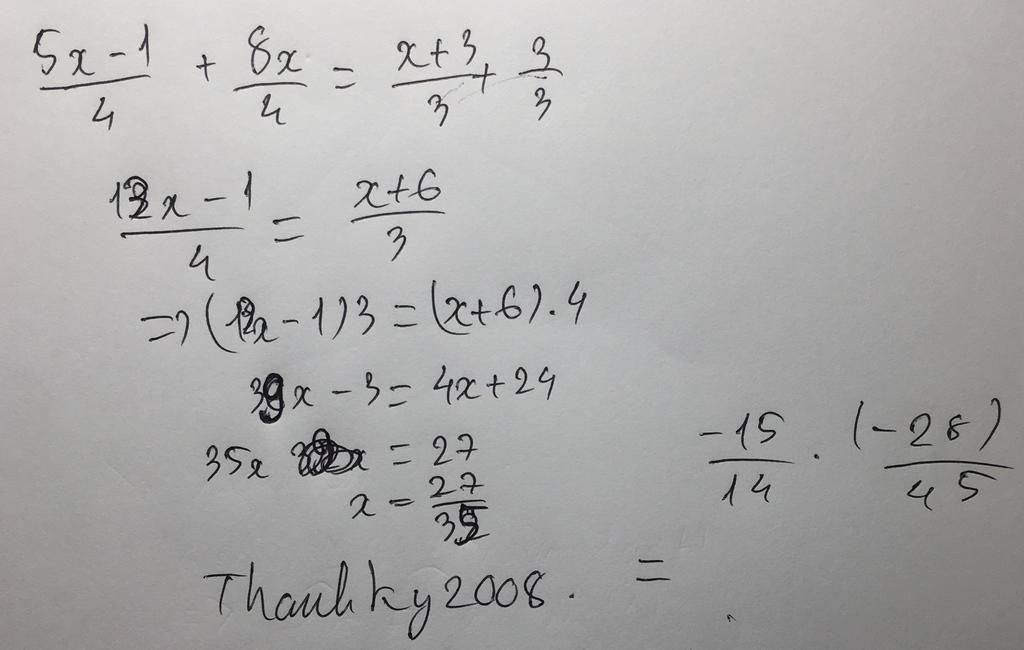 5x-1/4 + 8x/4 = x+3/3 + 3/3
13x-1/4 = x+6/3
=> (13x-1)3 = (x+6).4
39x-3 = 4x+24
35x = 27
x = 27/35
-15/14 . (-28)/45
=
Thanhky2008.